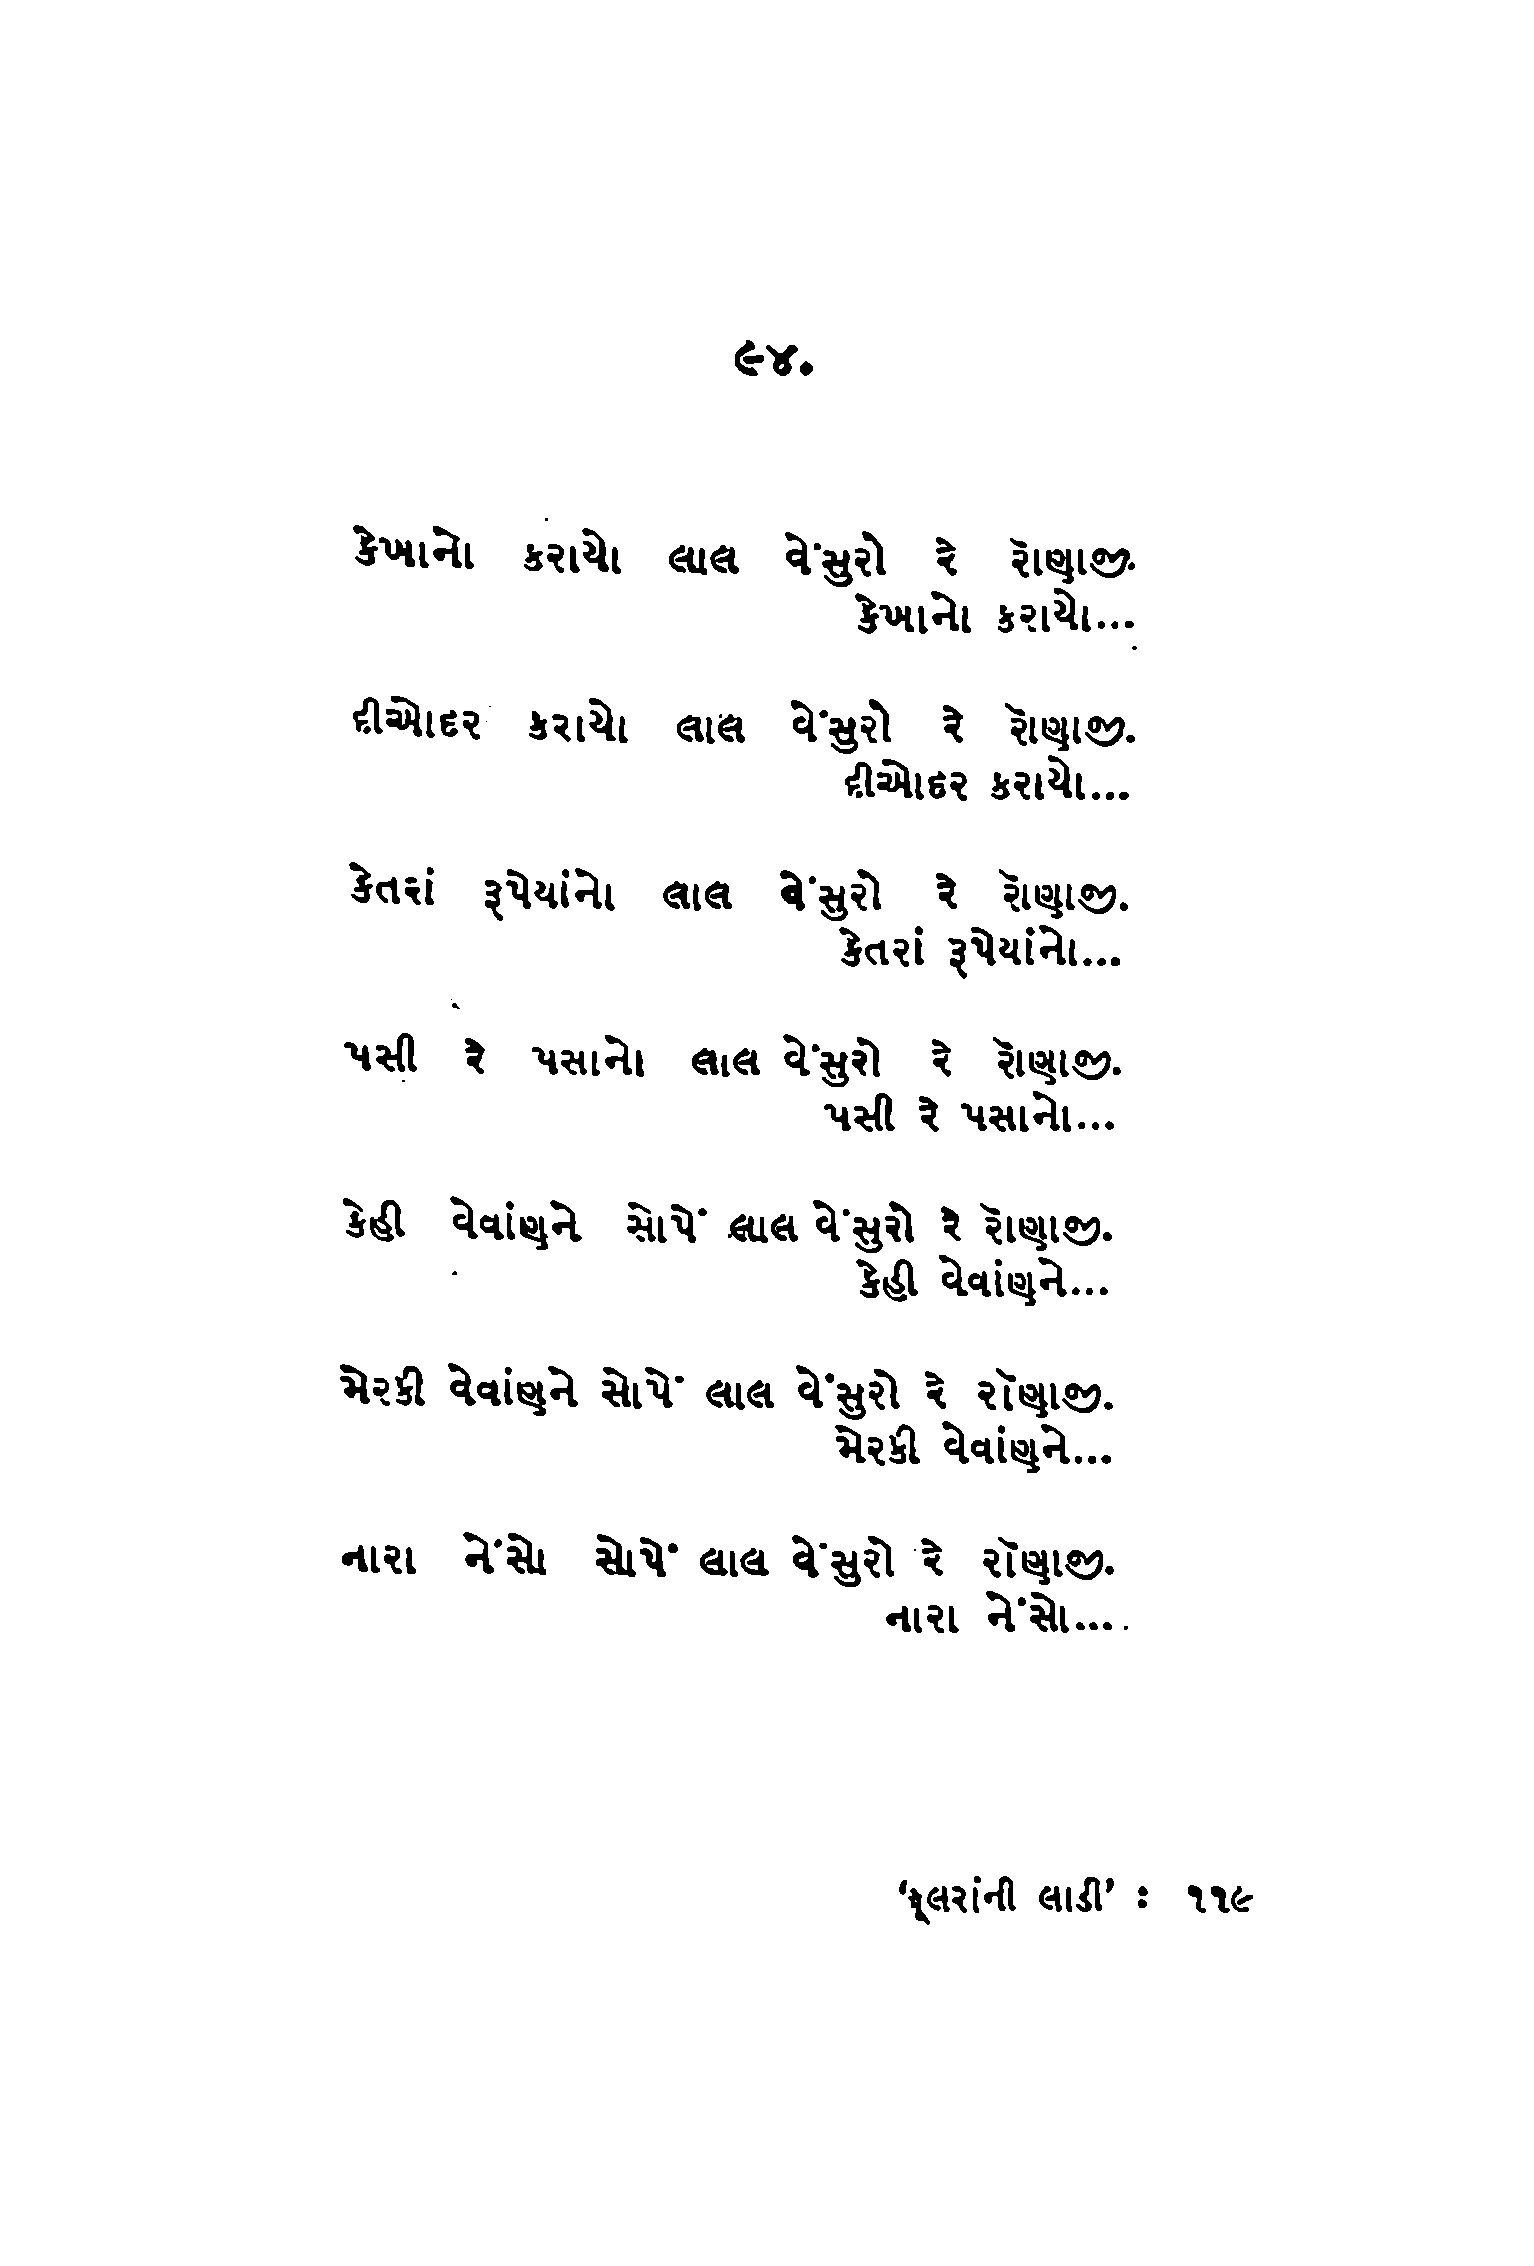 ૯૪.
કેખાનો કરાયો લાલ વેંસુરો રે રૉણાજી.
કેખાનો કરાયો...
દીઓદર કરાયો લાલ વેંસુરો રે રૉણાજી.
દીઓદર કરાયો...
કેતરાં રૂપેયાંનો લાલ વેંસુરો રે રૉણાજી.
કેતરાં રૂપેયાંનો...
પસી રે પસાનો લાલ વેંસુરો રે રૉણાજી.
પસી રે પસાનો...
કેહી વેવાંણને સોપેં લાલ વેંસુરો રે રૉણાજી.
કેહી વેવાંણને...
મેરકી વેવાંણને સોપેં લાલ વેંસુરો રે રૉણાજી.
મેરકી વેવાંણને...
નારા નેંસો સોપેં લાલ વેંસુરો રે રૉણાજી.
નારા નેંસો...
‘ફૂલરાંની લાડી’ : ૧૧૯